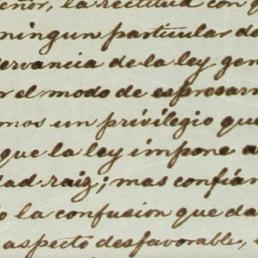 eñor, la rectitud con q
ningun particular de
ervancia de la ley gen
or el modo de espresarn
mos un privilegio que
que la ley impone a
dad raiz; mas confian
o la confusion que da
aspecto desfavorable,